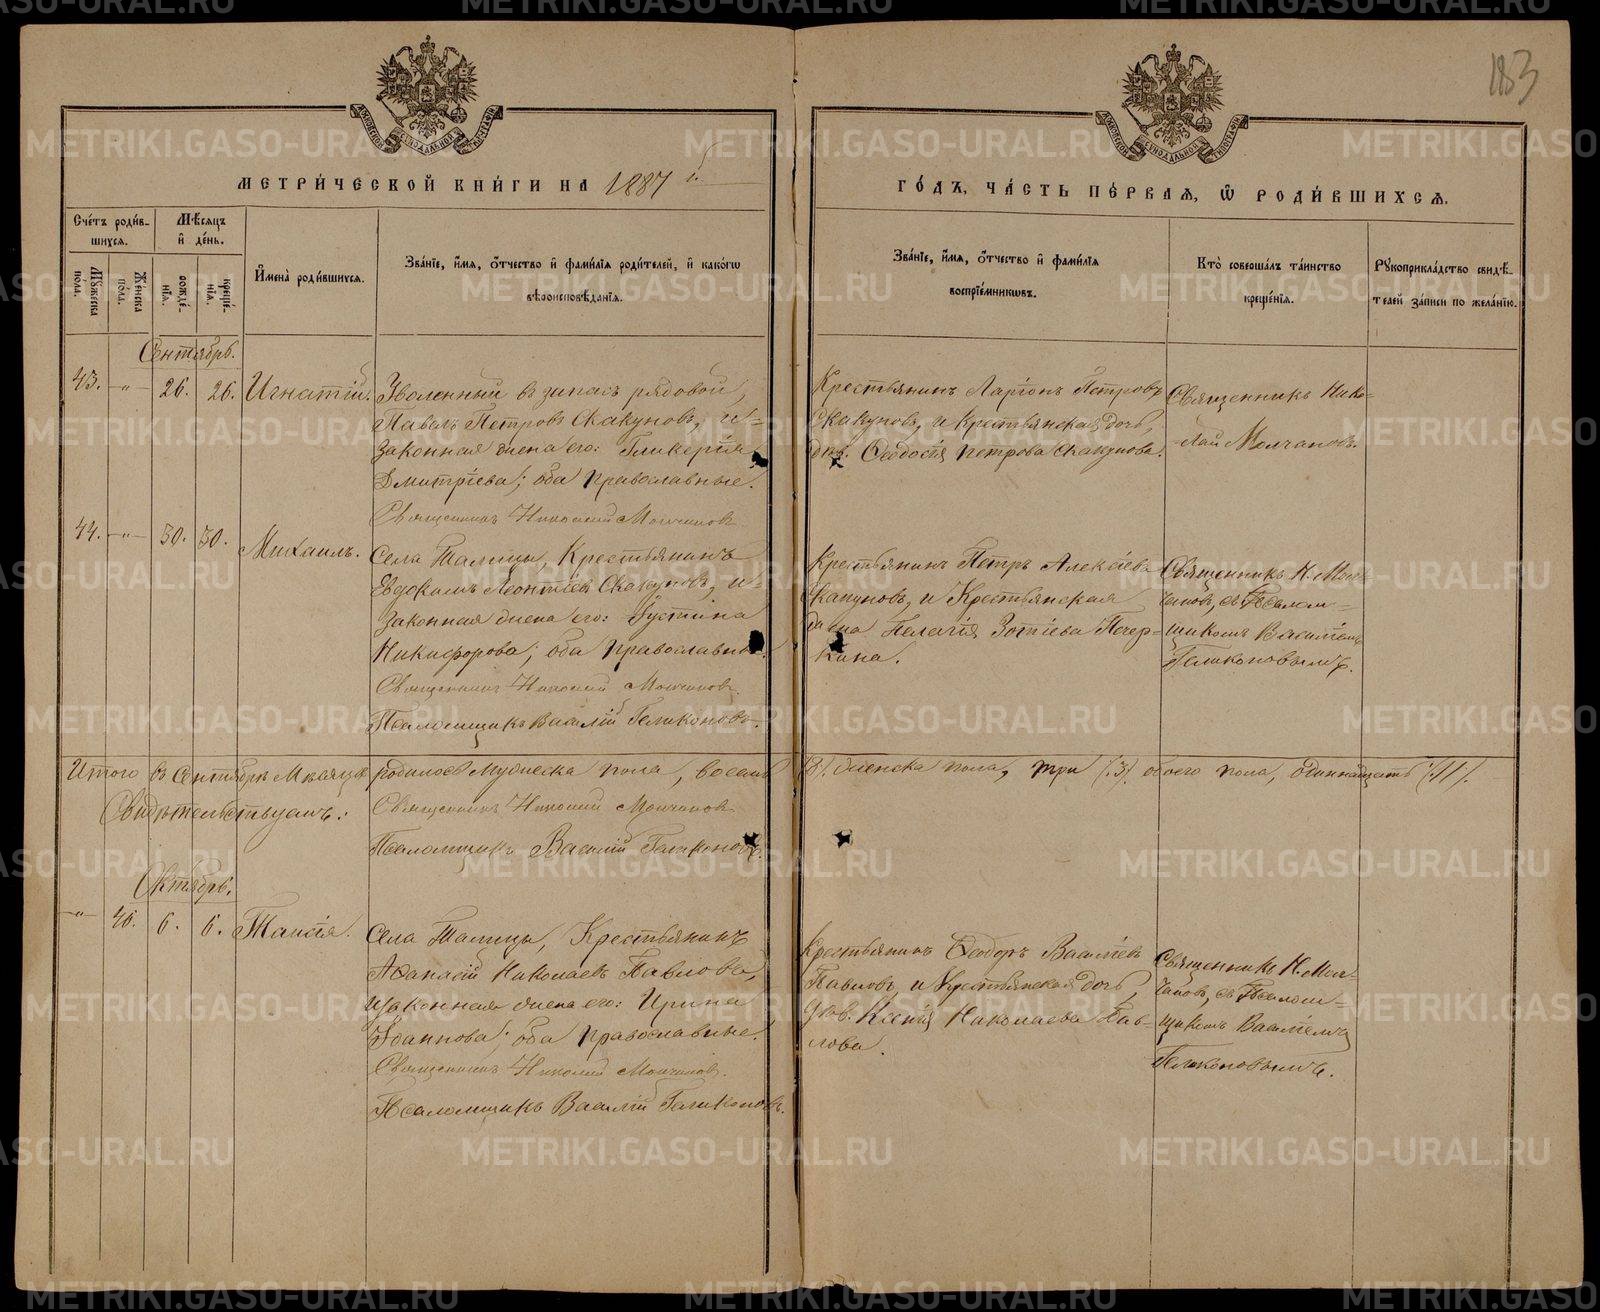 183
МОСКОВСКОЙ СѴНОДАЛЬНОЙ ТИПОГРАФІИ
МОСКОВСКОЙ СѴНОДАЛЬНОЙ ТИПОГРАФІИ
МЕТРИ́ЧЕСКОЙ КНИ́ГИ НА 1887 г.
ГО́ДЪ, ЧА́СТЬ ПЕ́РВАЯ, Ѿ РОДИ́ВШИХСЯ.
Сче́тъ роди́вшихся.
Мꙋ́жеска пола.
Же́нска по́ла.
Мѣ́сяцъ и де́нь.
рожде́нїя.
креще́нїя.
Имена̀ роди́вшихся.
Зва́нїе, и́мя, о́тчество и фами́лїя роди́телей, и како́гѡ вѣроисповѣ́данїя.
Зва́нїе, и́мя, о́тчество и фами́лїя воспрїе́мникѡвъ.
Кто̀ соверша́лъ та́инство креще́нїя.
Рꙋкоприкла́дство свидѣ́телей за́писи по жела́нїю.
Сентябрь.
43. -"- 26. 26. Игнатій.
Уволенный въ запасъ рядовой,
Павелъ Петровъ Скакуновъ, и
законная жена его: Гликерія
Дмитріева; оба православные.
Священникъ Николай Молчановъ
Крестьянинъ Ларіонъ Петровъ
Скакуновъ, и Крестьянская дочь,
дѣв. Ѳеодосія Петрова Скакунова.
Священникъ Нико-
-лай Молчановъ.
44. -"- 30. 30. Михаилъ.
Села Талицы, Крестьянинъ
Евдокимъ Леонтіевъ Скакуновъ, и
законная жена его: Іустіна
Никифорова; оба православные.
Священникъ Николай Молчановъ
Псаломщикъ Василій Геликоновъ.
Крестьянинъ Петръ Алексѣевъ
Скакуновъ, и Крестьянская
жена Пелагія Зотіева Печер-
кина.
Священникъ Н. Мол-
чановъ, съ Псалом-
щикомъ Василіемъ
Геликоновымъ.
Итого въ Сентябрѣ Мѣсяцѣ родилось Мужеска пола, восемь (8). женска пола, три (3). обоего пола, одиннадцать (11).
Свидѣтельствуемъ:
Священникъ Николай Молчановъ
Псаломщикъ Василій Геликоновъ.
Октябрь.
-"- 46. 6. 6. Таисія.
Села Талицы, Крестьянинъ
Аѳанасій Николаевъ Павловъ,
и законная жена его: Ирина
Іоаннова; оба православные.
Священникъ Николай Молчановъ.
Псаломщикъ Василій Геликоновъ.
Крестьянинъ Ѳеодоръ Василіевъ
Павловъ, и Крестьянская дочь,
дѣв. Ксенія Николаева Пав-
лова.
Священникъ Н. Мол-
чановъ, съ Псалом-
щикомъ Василіемъ
Геликоновымъ.
METRIKI.GASO-URAL.RU